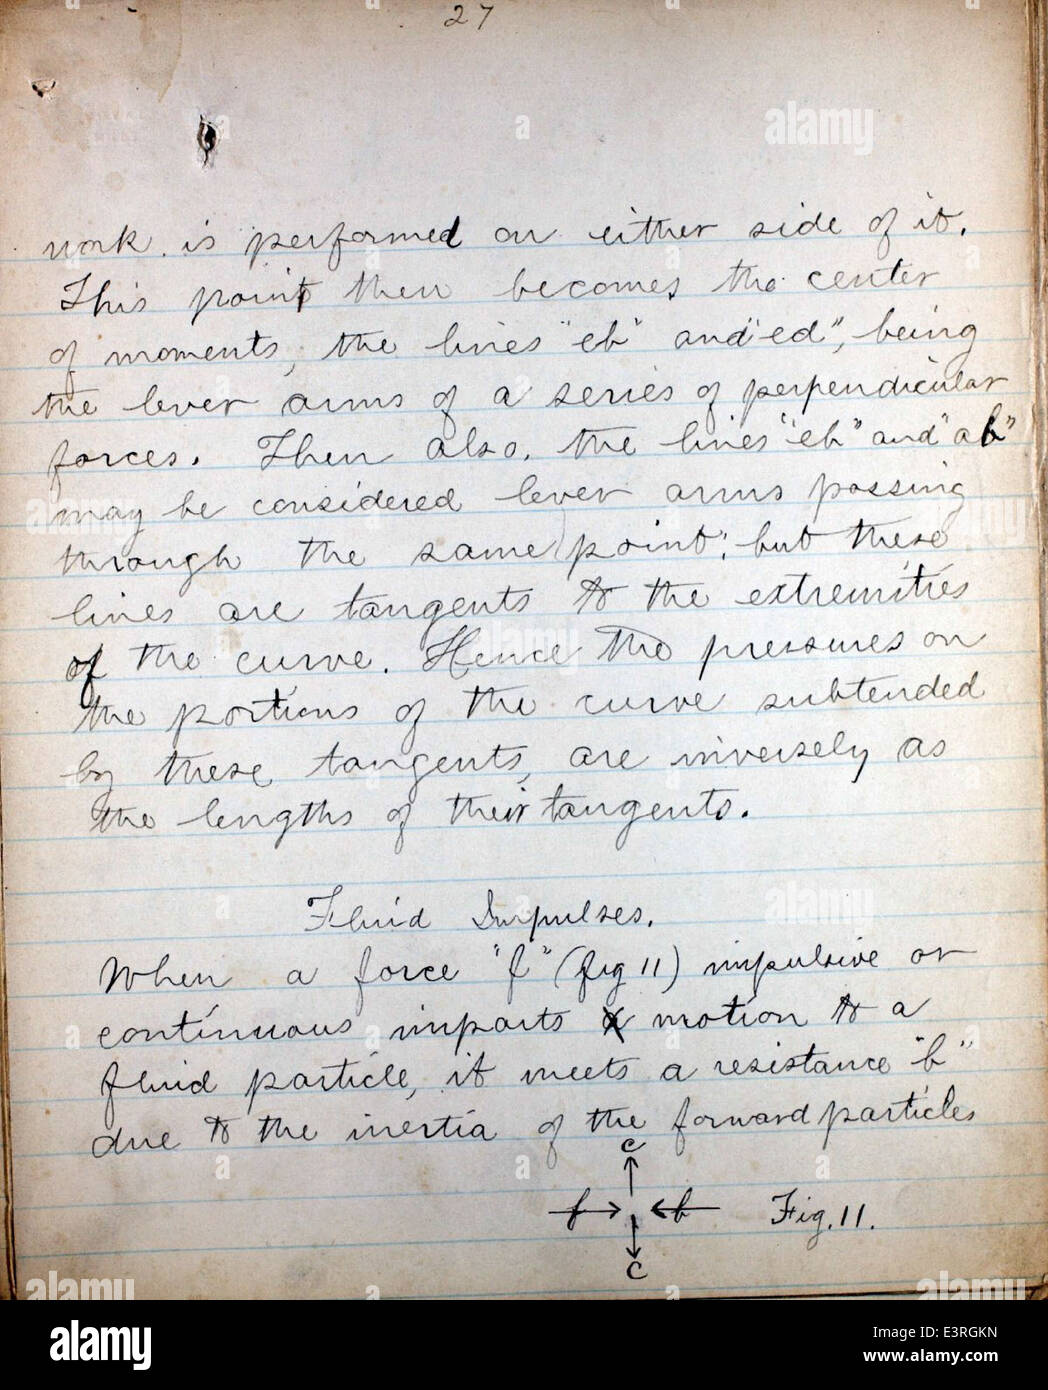 27
work is performed on either side of it.
This point then becomes the center
of moments, the lines "eb" and "ed", being
the lever arms of a series of perpendicular
forces. Then also, the lines "eb" and "ab"
may be considered lever arms passing
through the same point; but these
lines are tangents to the extremities
of the curve. Hence the pressures on
the portions of the curve subtended
by these tangents, are inversely as
the lengths of their tangents.
Fluid Impulses.
When a force "f" (fig 11) impulsive or
continuous imparts motion to a
fluid particle, it meets a resistance "b"
due to the inertia of the forward particles
c
f b Fig. 11.
c
a alamy
alamy
alamy
alamy
alamy
a alamy
a a a
alamy alamy
alamy
Image ID: E3RGKN
www.alamy.com